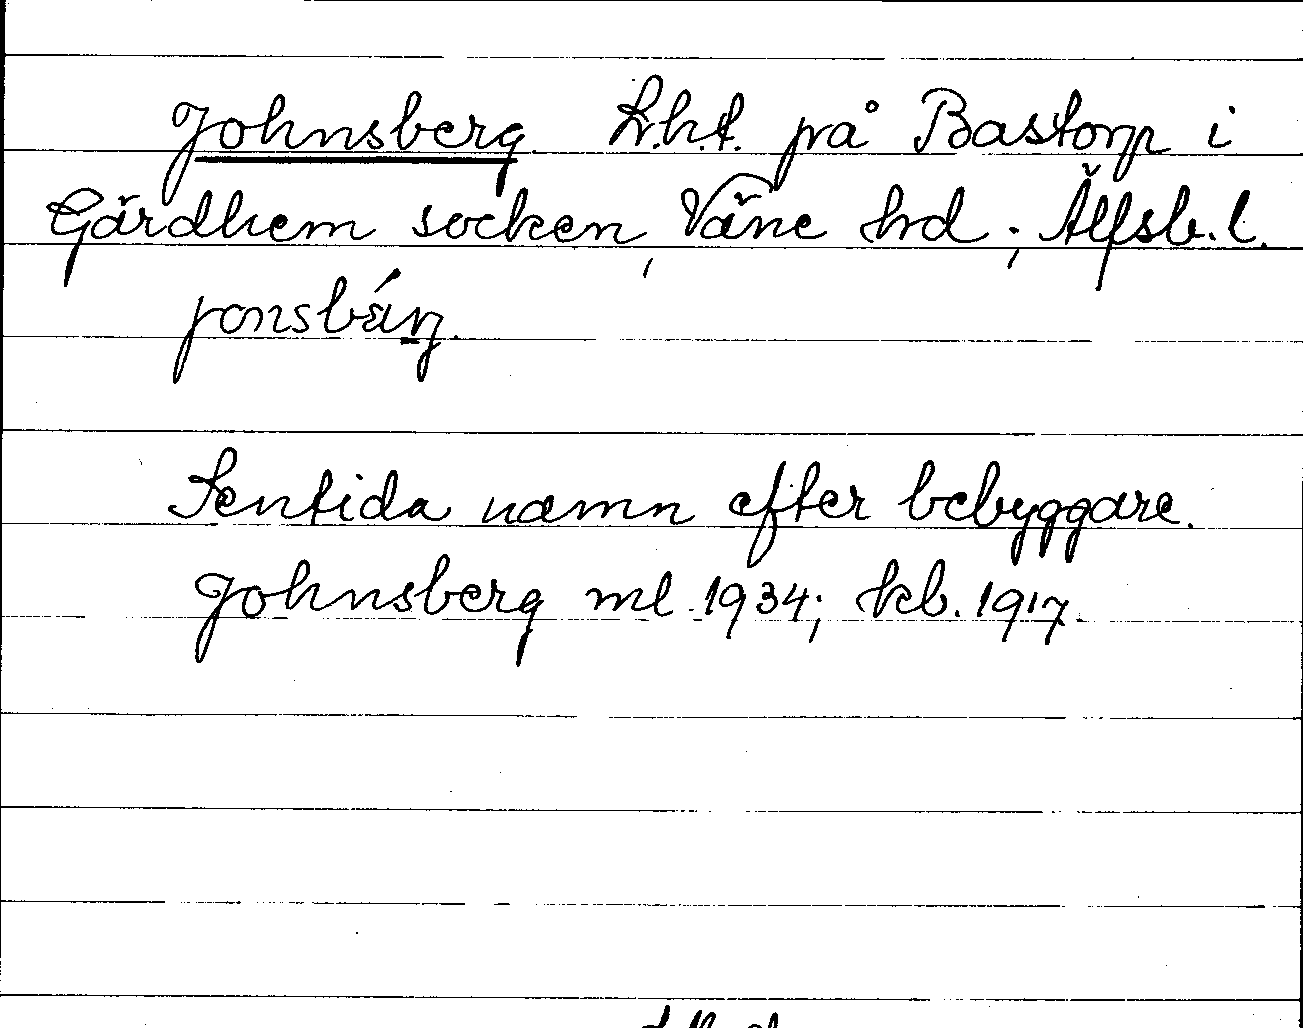 Johnsberg. L.h.t. på Bastorp i
Gärdhem socken, Väne hd; Älfsb. l.
jonsbárj.
Sentida namn efter bebyggare.
Johnsberg ml 1934; kb. 1917.